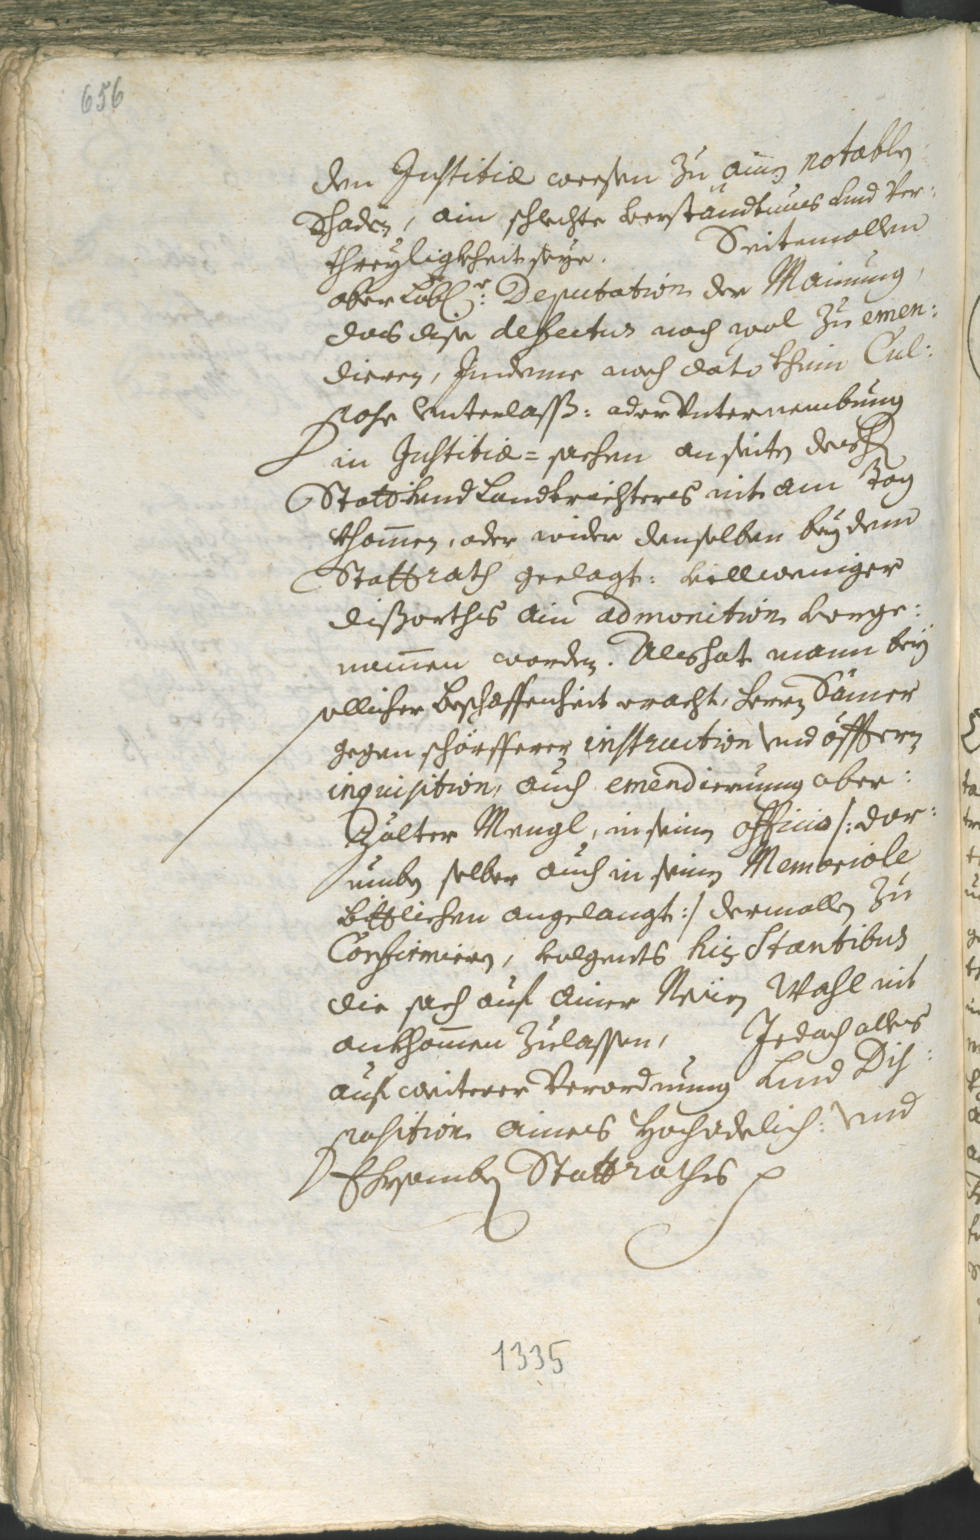 656
dem Justitiæ weesen zu ainem notablen
Schaden, ain schlechte verständtnus und Ver:
threyligkheit seye. Seitemallen
aber Löbl:r Deputation der Mainung,
das dise defectus noch wol zu emen:
dieren, Indeme noch dato khein Cul:
pose Unterlass: oder Unternembung
in Justitiæ=sachen an seiten des H:
Statt und Landtrichters nit am Tag
khommen, oder wider denselben bey dem
Stattrath geclagt: vill weniger
dißorths ain admonition vorge:
nommen worden. Als hat mann bey
sollicher beschaffenheit eracht, Herrn
gegen schörfferer instruction und öfftern
inquisition, auch emendierung ober:
zölter Mengl, in seinem officio /: dar:
umben selber auch in seinem Memoriale
bittlichen angelangt :/ dermallen zu
Confirmiern, volgents his stantibus
die sach auf ainer Neuen Wahl nit
ankhommen zulassen, Jedoch alles
auf weiterer Verordnung und Dis:
position aines Hochadelich: und
Ehrsamben Stattraths
1335